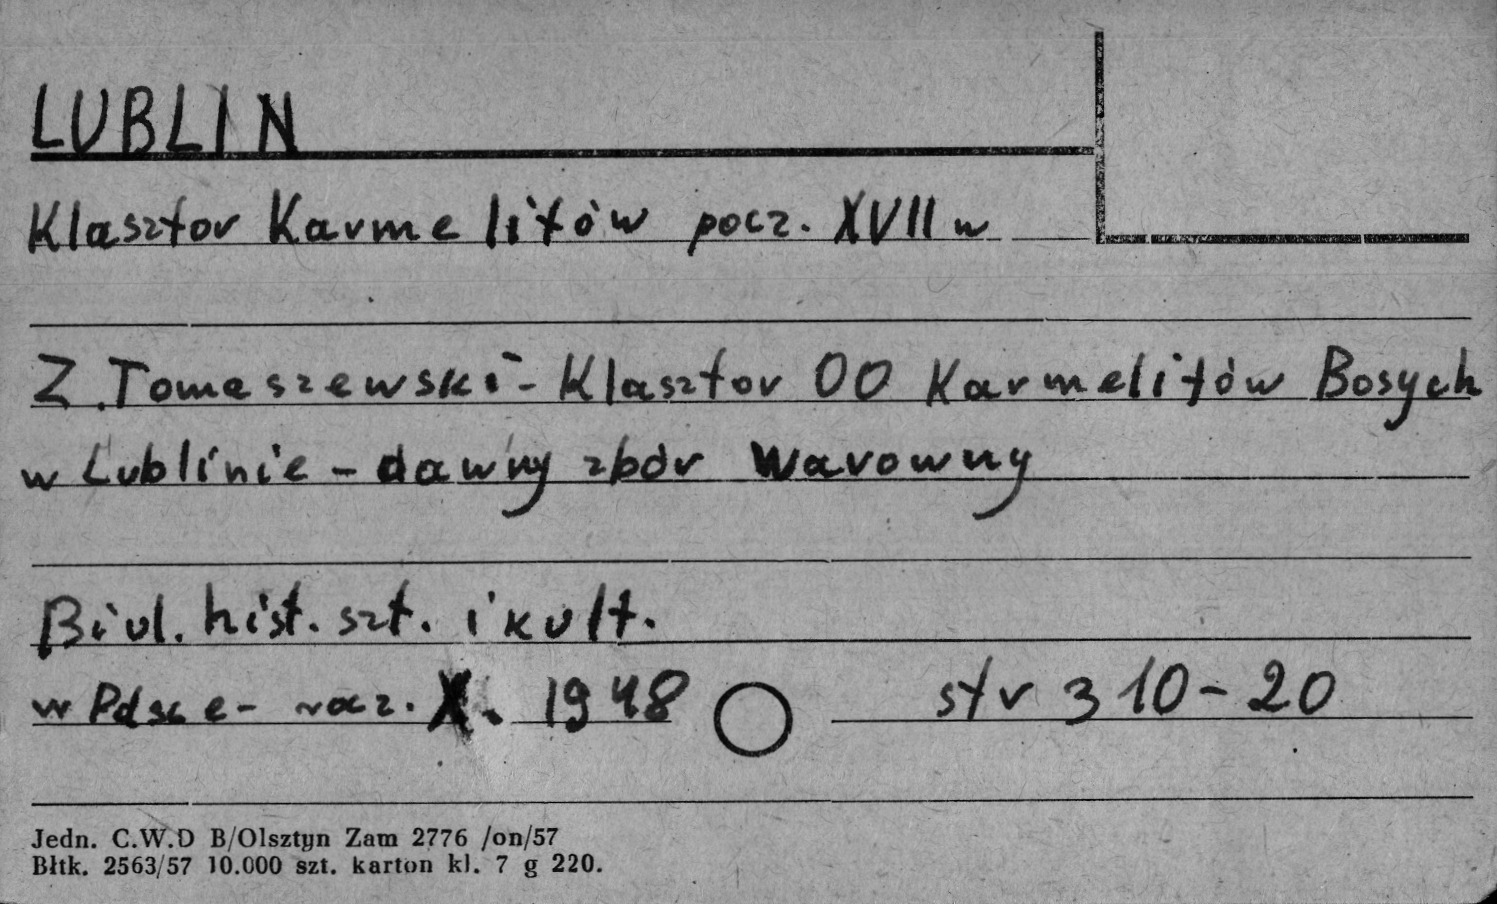 LUBLIN
Klasztor Karmelitów pocz. XVII w
Z. Tomaszewski - Klasztor OO Karmelitów Bosych
w Lublinie - dawny zbór warowny
Biul. hist. szt. i kult.
w Polsce - rocz. X. 1948 str 310-20
Jedn. C.W.D B/Olsztyn Zam 2776 /on/57
Błtk. 2563/57 10.000 szt. karton kl. 7 g 220.